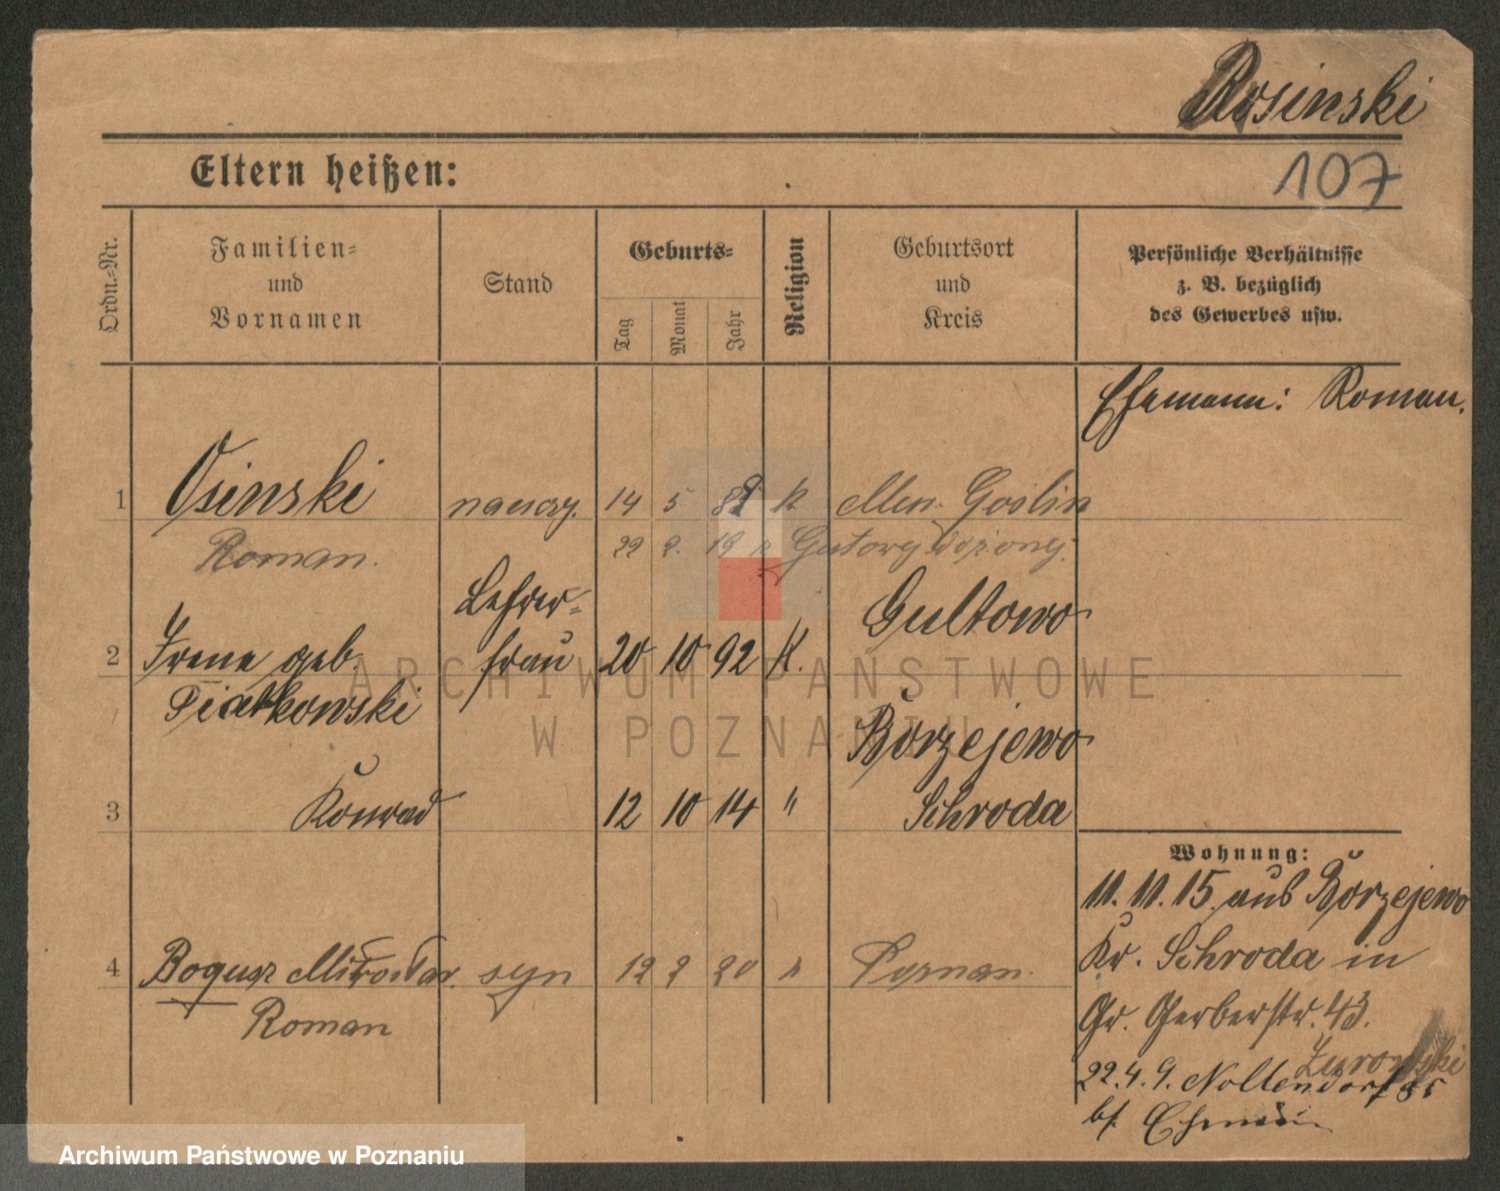 Rosinski
Eltern heißen:
107
Ordn.=Nr.
Familien=
und
Vornamen
Stand
Geburts=
Tag
Monat
Jahr
Religion
Geburtsort
und
Kreis
Persönliche Verhältnisse
z. B. bezüglich
des Gewerbes usw.
Ehemann: Roman.
1 Osinski naucz. 14 5 k Mur. Goslin
Roman. 29 2. 19
Lehrer=
Gultowo
2 Irene geb. frau 20 10 92 K.
Piatkowski
Borzejewo
3 Konrad 12 10 14 " Schroda
Wohnung:
11. 11. 15. aus Borzejewo
4 Bogusz Mirosław syn 12 2 20 Poznan.
Kr. Schroda in
Roman
Gr. Gerberstr. 43.
Zurowski
22. 4. 9. Nollendorf 35
bf.
ARCHIWUM PAŃSTWOWE
W POZNANIU
Archiwum Państwowe w Poznaniu